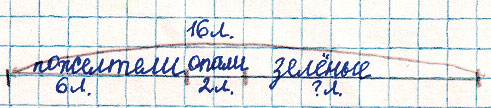 16л.
пожелтели опали зелёные
6л. 2л. ?л.